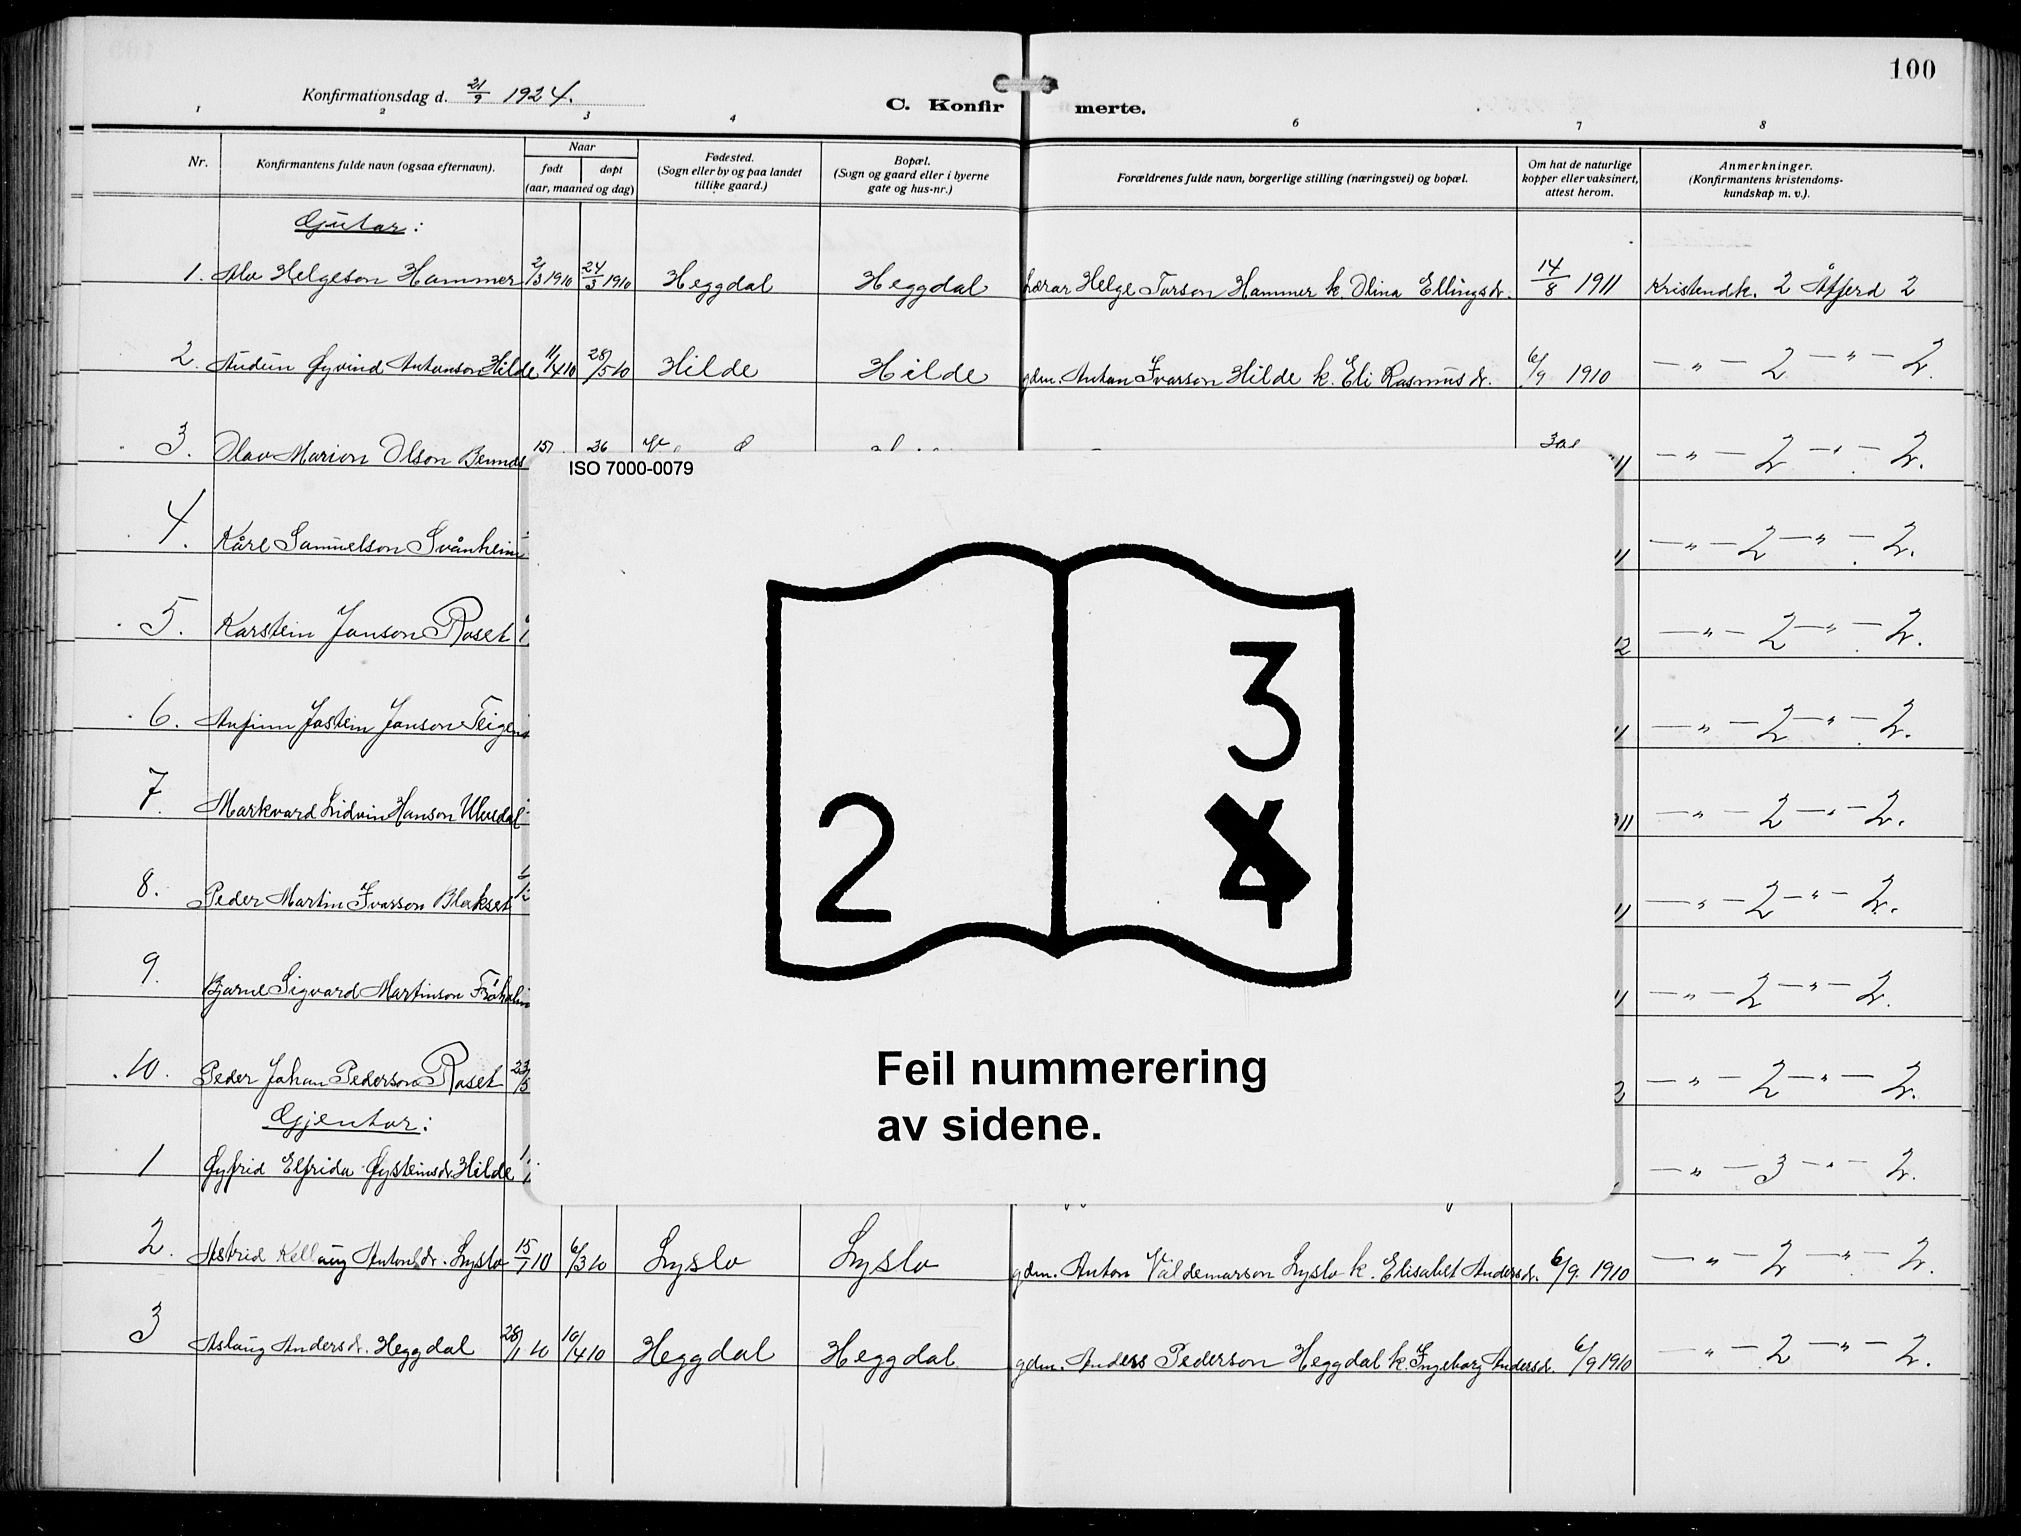 100
Konfirmationsdag d. 21/9 1924.
C. Konfirmerte.
1 2 3 4 6 7 8
Nr. Konfirmantens fulde navn (ogsaa efternavn). Naar født døpt (aar, maaned og dag) Fødested. (Sogn eller by og paa landet tillike gaard.) Bopæl. (Sogn og gaard eller i byerne gate og hus-nr.) Forældrenes fulde navn, borgerlige stilling (næringsvei) og bopæl. Om hat de naturlige kopper eller vaksinert, attest herom. Anmerkninger. (Konfirmantens kristendoms-kundskap m. v.).
Gutar:
1. Alv Helgeson Hammer 2/3 1910 24/3 1910 Heggdal Heggdal lærar Helge Torson Hammer k. Olina Ellingsdr. 14/8 1911 Kristendk. 2 Åtferd 2
2. Audun Øyvind Antonson Hilde 11/4 10 28/5 10 Hilde Hilde gdm. Anton Ivarson Hilde k. Eli Rasmusdr. 6/9 1910 — " — 2 — " — 2.
3. Olav Marion Olson 15 36 11 — " — 2 — " — 2.
4. Kåre Samuelson Svånheim 11 — " — 2 — " — 2.
5. Karstein Janson Roset 12 — " — 2 — " — 2.
6. Anfinn Jostein Janson 11 — " — 2 — " — 2.
7. Markvard Lidvin Hanson 11 — " — 2 — " — 2.
8. Peder Martin Ivarson Blakset 11 — " — 2 — " — 2.
9. Bjarne Sigvard Martinson 11 — " — 2 — " — 2.
10. Peder Johan Pederson Roset 23/5 — " — 2 — " — 2.
Gjentor:
1 Øyfrid Elfrida Øysteinsdr. Hilde — " — 3 — " — 2.
2. Astrid Kellaug Antonsdr. Lyslo 15/1 10 6/3 10 Lyslo Lyslo gdm. Anton Valdemarson Lyslo k. Elisabet Andersdr. 6/9 1910 — " — 2 — " — 2.
3 Aslaug Andersdr. Heggdal 28/1 10 10/4 10 Heggdal Heggdal gdm. Anders Pederson Heggdal k. Ingeborg Andersdr. 6/9 1910 — " — 2 — " — 2.
ISO 7000-0079
3
2 4
Feil nummerering
av sidene.